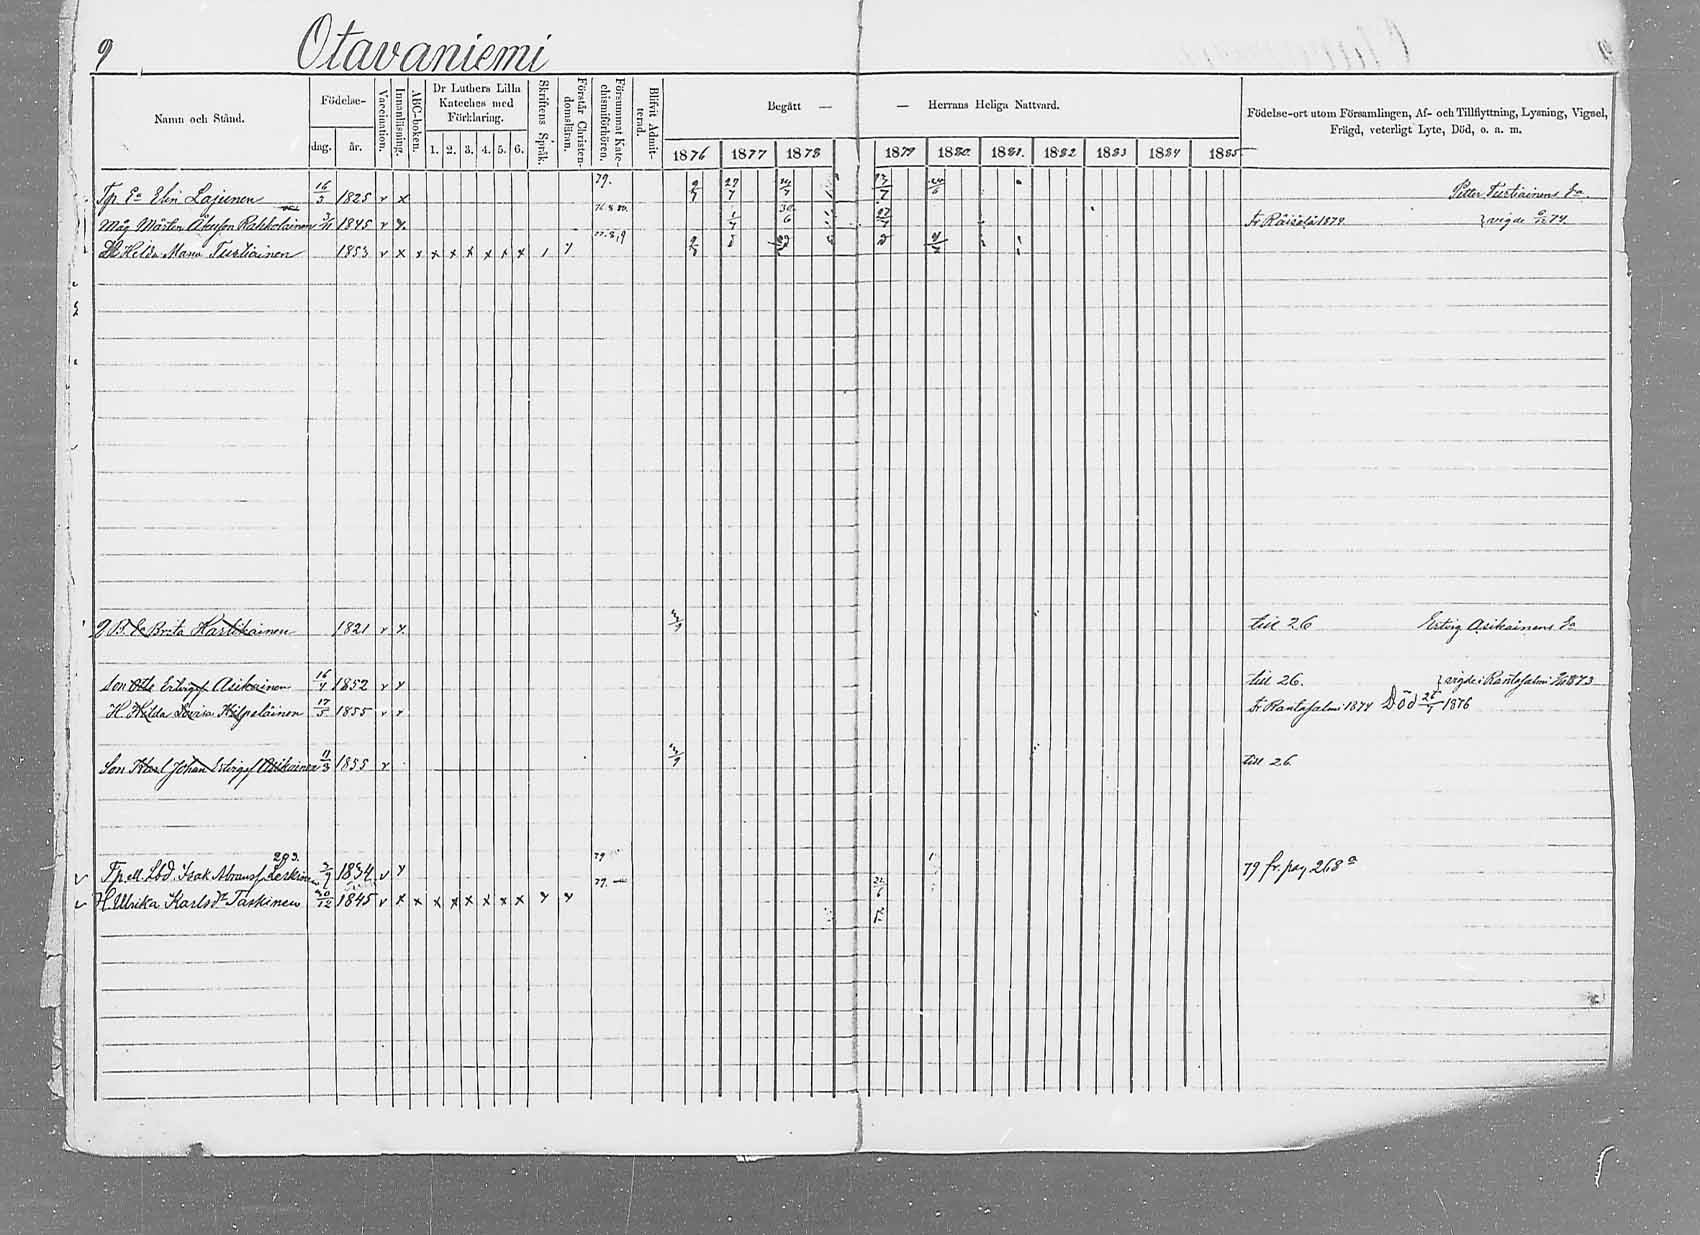 9 Otavaniemi
Namn och Stånd.
Födelse-
dag.
år.
Vaccination.
Innanläsning.
ABC-boken.
Dr Luthers Lilla
Kateches med
Förklaring.
1. 2. 3. 4. 5. 6.
Skriftens Språk.
Förstår Christen-
domsläran.
Försummat Kate-
chismiförhören.
Blifvit Admit-
terad.
Begått — — Herrans Heliga Nattvard.
1876 1877 1878 1879 1880 1881 1882 1883 1884 1885
Födelse-ort utom Församlingen, Af- och Tillflyttning, Lysning, Vigsel,
Frägd, veterligt Lyte, Död, o. a. m.
Tp. Ea Elin Lajunen 16/5 1825 v x 79. 9/7 Petter Tustiainens Ea.
Måg Mårten Åkesson Rahkolainen 3/11 1845 v x fr Räisälä 1874 vigde 74
H Helda Maria Tustiainen 1853 v x x x x x x x x
B. Ea Brita Hartikainen 1821 v x till 26 Ertvig Asikainens Ea
Son Otto Ertvigsf Asikainen 16/4 1852 v x till 26. vigde i Rantasalmi 1873
H Hilda Lovisa Kilpeläinen 17/5 1855 v v fr Rantasalmi 1874 Död 1876
Son Karl Johan Ertvigsf Asikainen 11/3 1855 v till 26.
203.
Tp. ell. Lbd. Isak Abramsf Leskinen 1834 v x 79 79 fr. pag 268 a
H. Ulrika Karlsdr Taskinen 30/12 1845 v x x x x x x x x x x 79.